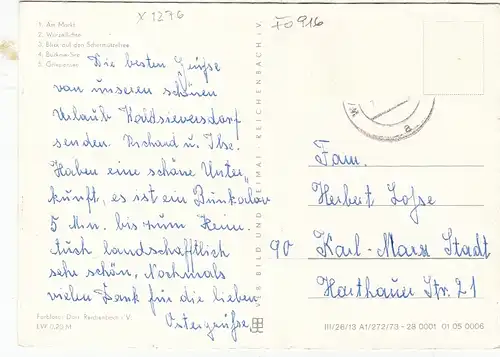 X 1276
FO 916
1. Am Markt
2. Wurzelfichte
3. Blick auf den Schermützelsee
4. Buckow-See
5. Griepensee
Die besten Grüße
von unseren schönen
Urlaub Waldsieversdorf
senden. Richard u. Ilse.
Haben eine schöne Unter
kunft, es ist ein Bunkalov
5 Mn. bis zum Heim.
Auch landschafftlich
sehr schön, Nochmals
vielen Dank für die lieben
Ostergrüße
Farbfoto: Darr, Reichenbach i. V.
EW 0,20 M
VEB BILD UND HEIMAT REICHENBACH i. V.
Fam.
Herbert Lohse
90 Karl-Marx Stadt
Harthauer Str. 21
III/26/13 A1/272/73 - 28 0001 01 05 0006